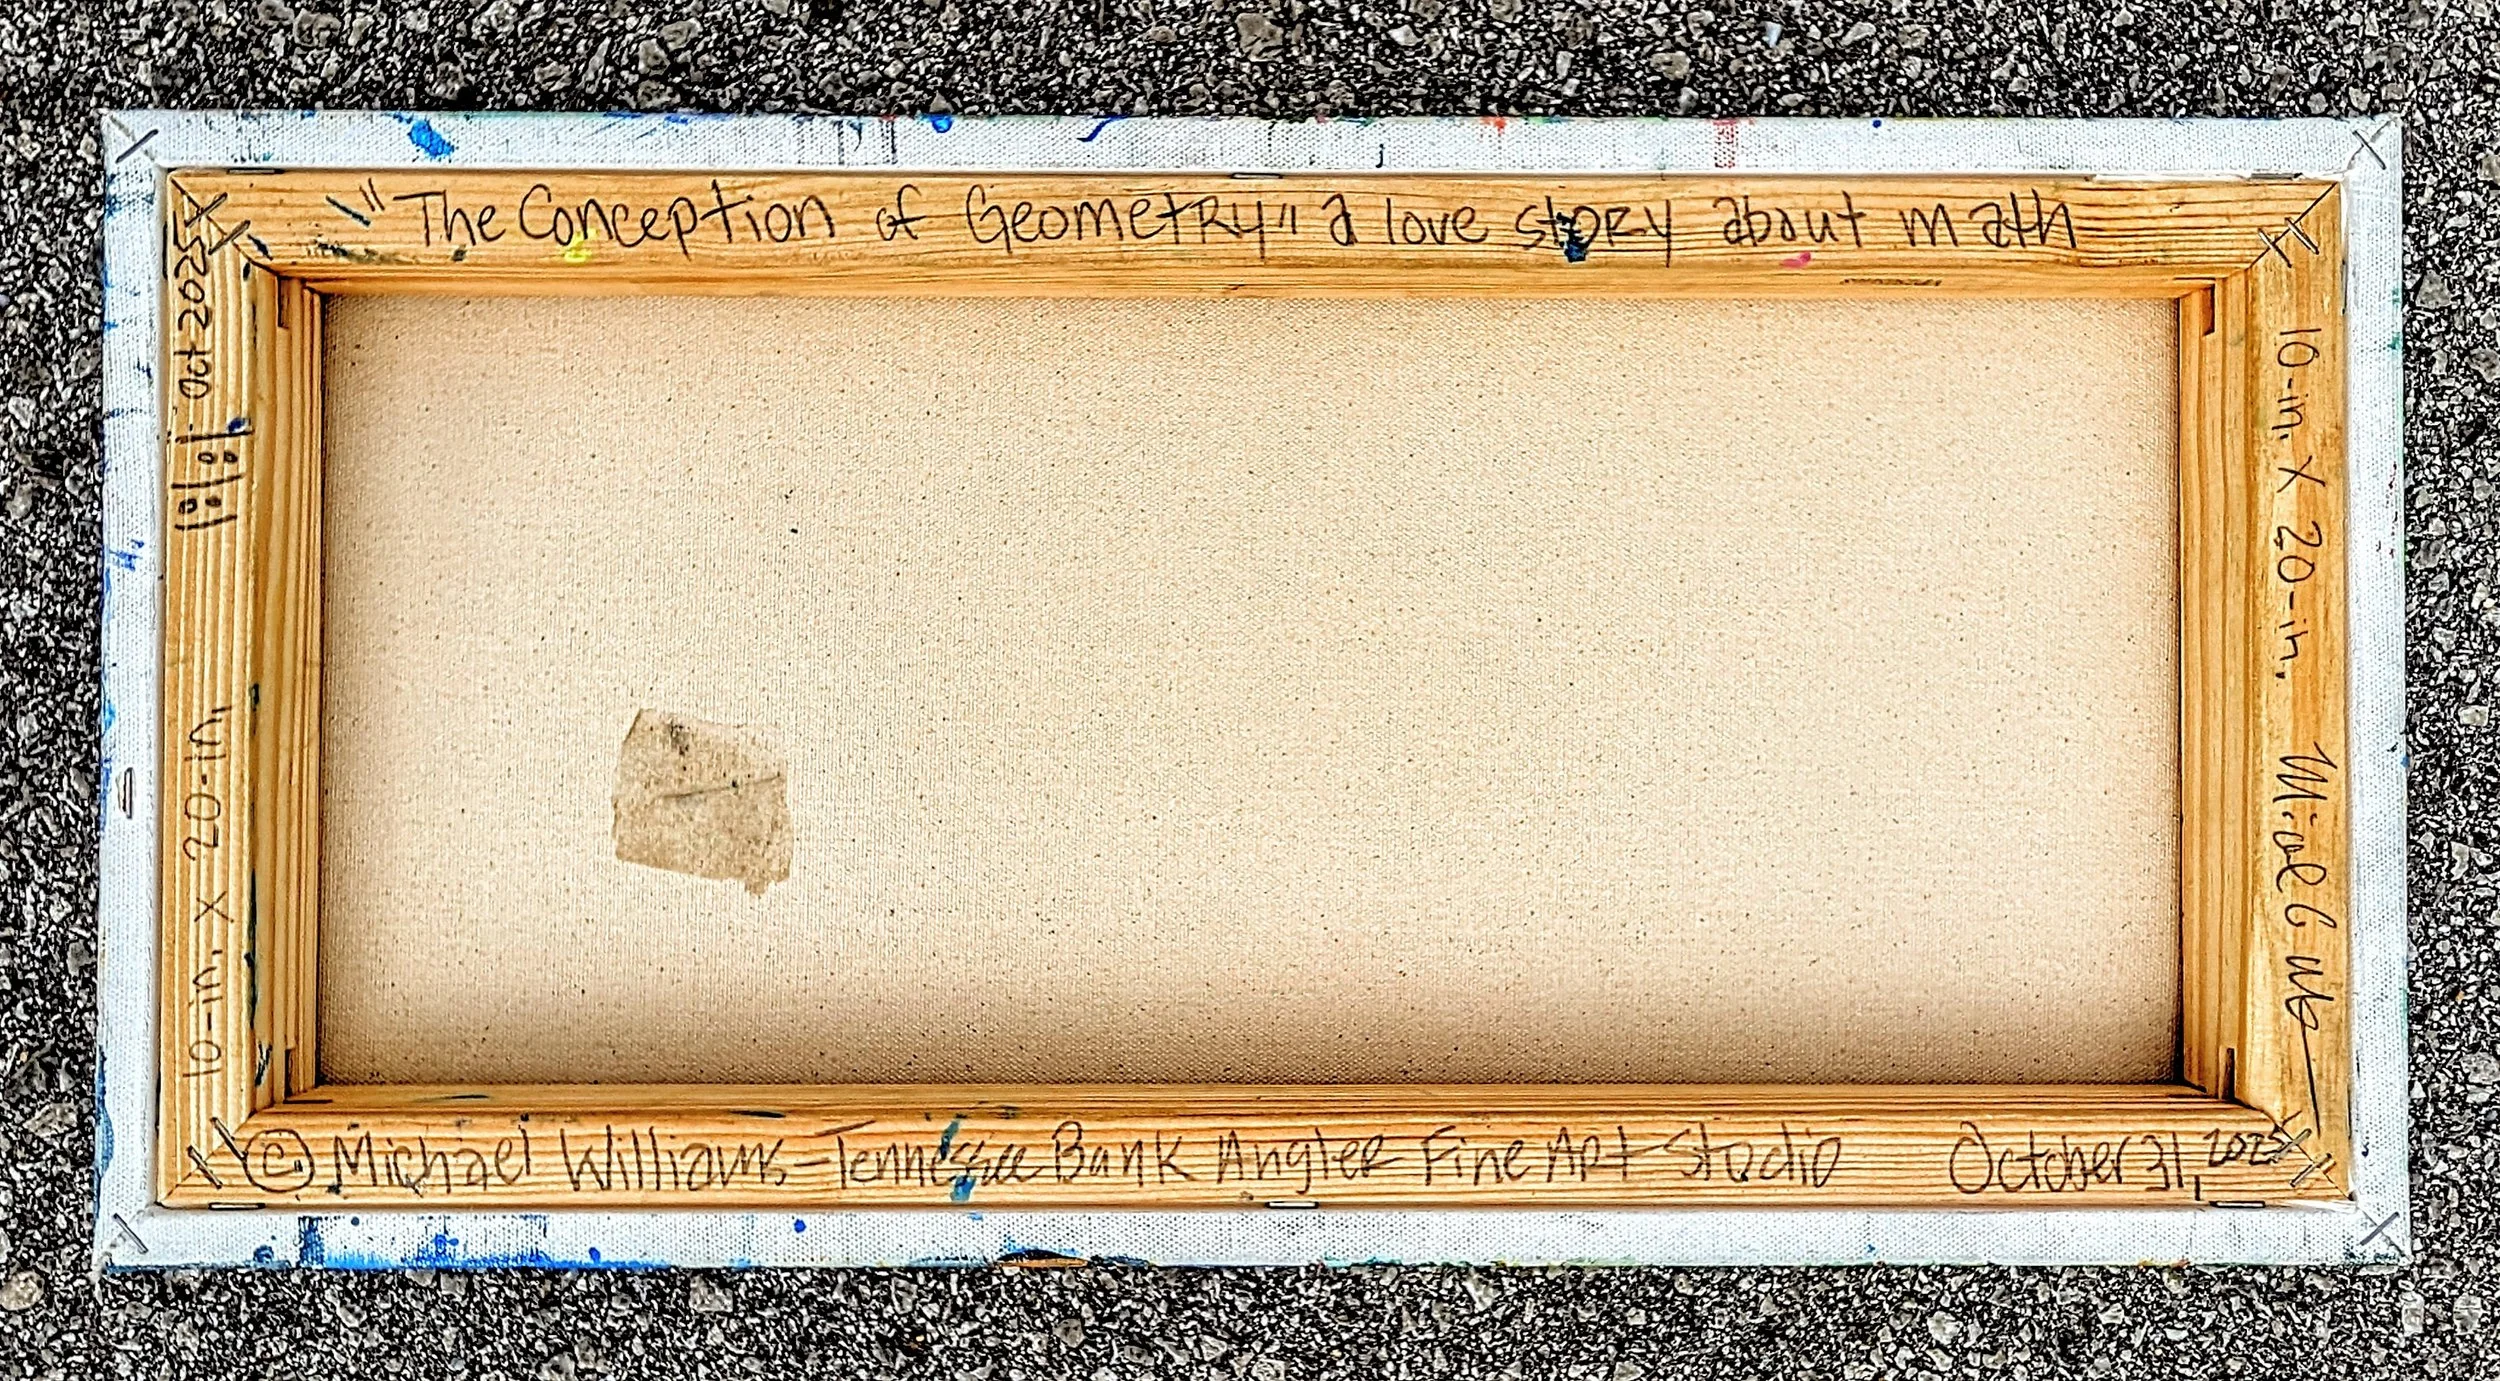 "The Conception of Geometry" a love story about math
10-in. x 20-in.
Oct 2025
10-in. x 20-in.
© Michael Williams-Tennessee Bank Angler Fine Art Studio October 31, 2025